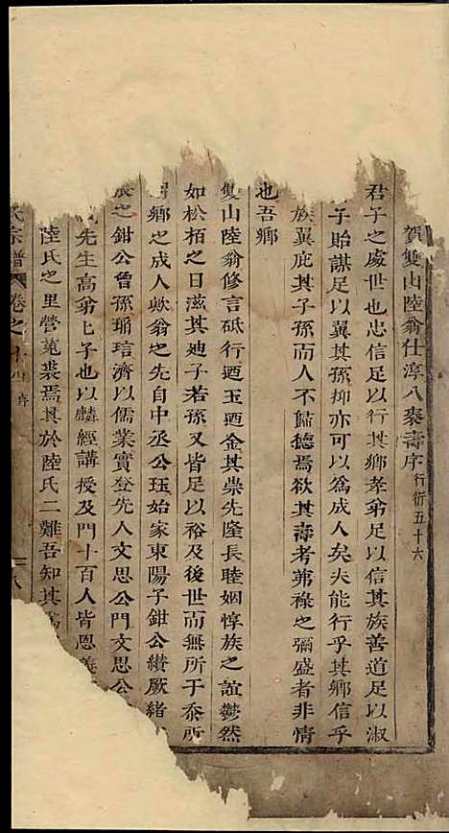 賀雙山陸翁仕淳八袠壽序 行衍五十六
君子之處世也忠信足以行其鄉孝弟足以信其族善道足以淑
子貽謀足以翼其孫抑亦可以為成人矣夫能行乎其鄉信乎
族翼庇其子孫而人不歸德焉欲其壽考茀祿之彌盛者非情
也吾鄉
雙山陸翁修言砥行迺玉迺金其崇先隆長睦婣惇族之誼鬱然
如松栢之日滋其廸子若孫又皆足以裕及後世而無所于忝所
鄉之成人歟翁之先自中丞公珏始家東陽子鉗公纘厥緒
之鉗公曾孫珊琂濟以儒業實登先人文思公門文思公
先生高弟七子也以麟經講授及門十百人皆恩義
陸氏之里營菟裘焉其於陸氏二難吾知其為
氏宗譜 卷之